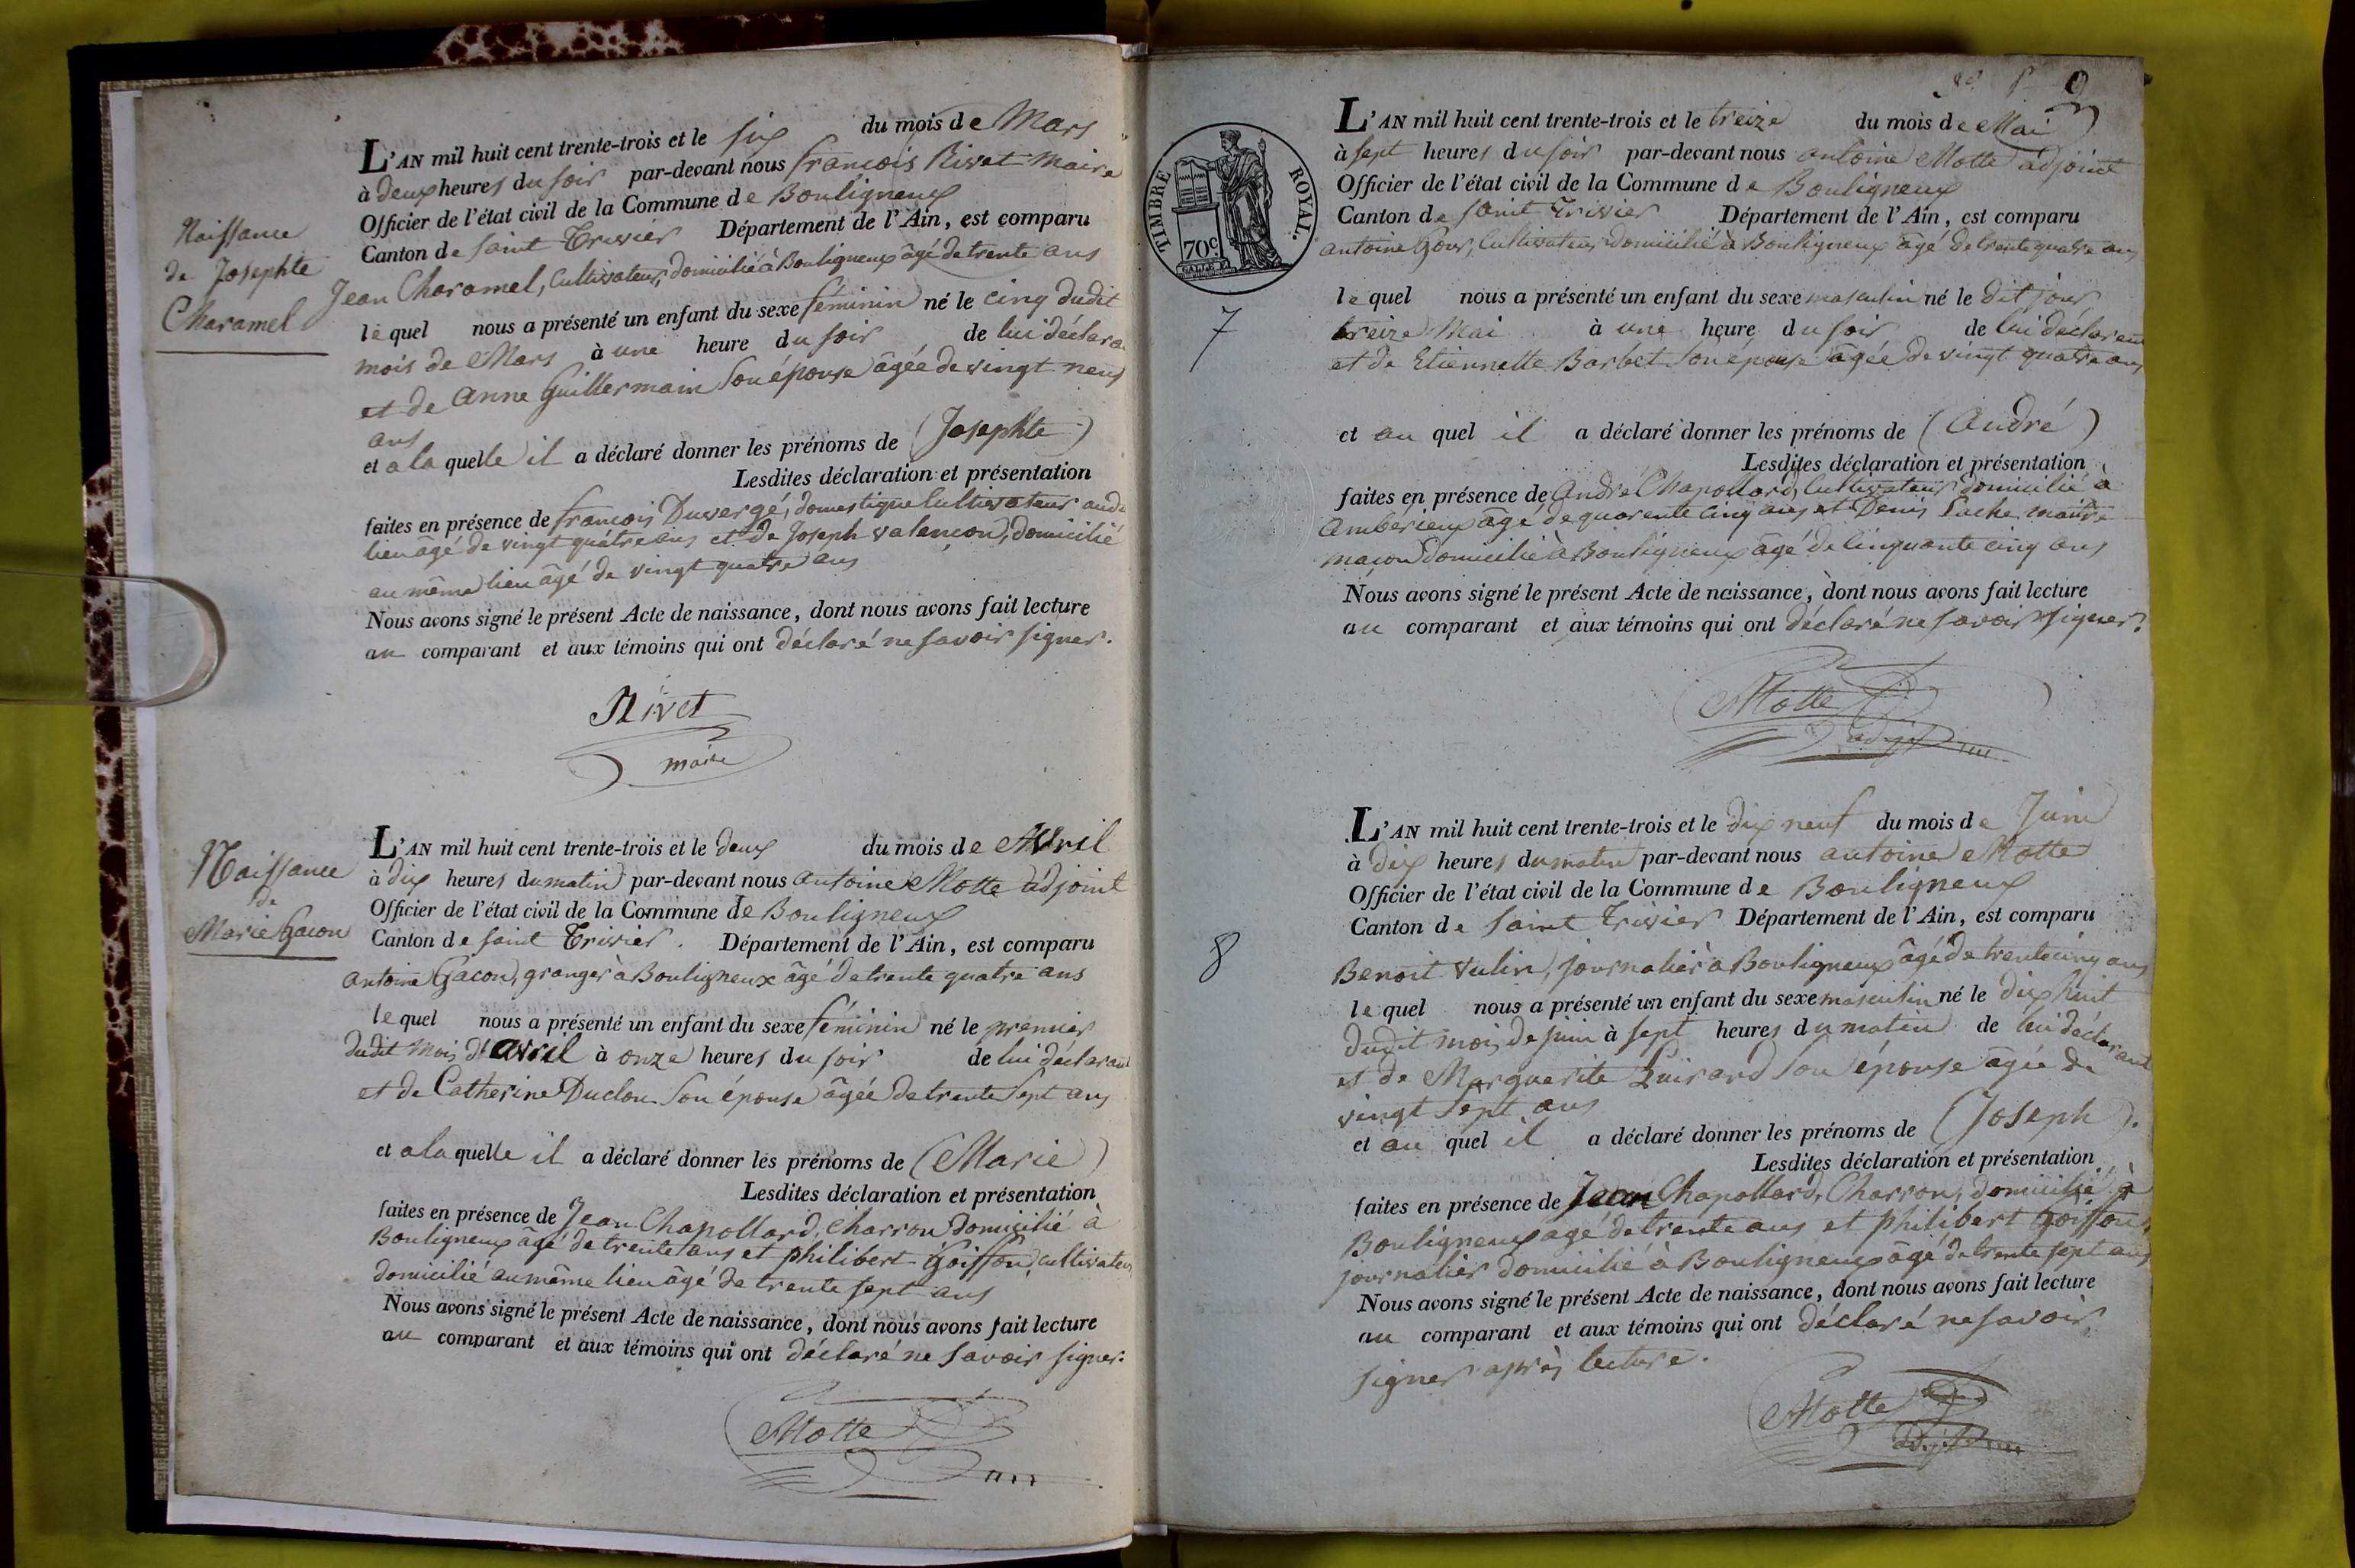 Naissance
de Josephte
Charamel
L'AN mil huit cent trente-trois et le six du mois de Mars
à deux heures du soir par-devant nous françois Rivet Maire
Officier de l'état civil de la Commune de Bouligneux
Canton de saint Trivier Département de l'Ain, est comparu
Jean Charamel, Cultivateur, domicilié à Bouligneux âgé de trente ans
le quel nous a présenté un enfant du sexe féminin né le cinq dudit
mois de Mars à une heure du soir de lui déclara
et de Anne Guillermain son épouse âgée de vingt neuf
ans
et a la quelle il a déclaré donner les prénoms de (Josephte)
Lesdites déclaration et présentation
faites en présence de françois Duvergé, domestique Cultivateur aud
lieu âgé de vingt quatre ans et de Joseph valençon, domicilié
au même lieu âgé de vingt quatre ans
Nous avons signé le présent Acte de naissance, dont nous avons fait lecture
au comparant et aux témoins qui ont déclaré ne savoir signer.
Rivet
maire
Naissance
de
Marie Gacon
L'AN mil huit cent trente-trois et le deux du mois de Avril
à dix heures du matin par-devant nous antoine Motte adjoint
Officier de l'état civil de la Commune de Bouligneux
Canton de saint Trivier. Département de l'Ain, est comparu
antoine Gacon, granger à Bouligneux âgé de trente quatre ans
le quel nous a présenté un enfant du sexe féminin né le premier
dudit mois d'avril à onze heures du soir de lui déclarant
et de Catherine Duclou son épouse âgée de trente sept ans
et a la quelle il a déclaré donner les prénoms de (Marie)
Lesdites déclaration et présentation
faites en présence de Jean Chapollard, charron domicilié à
Bouligneux âgé de trente ans et philibert Goiffon, cultivateur
domicilié au même lieu âgé de trente sept ans
Nous avons signé le présent Acte de naissance, dont nous avons fait lecture
au comparant et aux témoins qui ont déclaré ne savoir signer.
Motte
TIMBRE ROYAL.
70c.
7
L'AN mil huit cent trente-trois et le treize du mois de Mai
à sept heures du soir par-devant nous antoine Motte adjoint
Officier de l'état civil de la Commune de Bouligneux
Canton de saint Trivier Département de l'Ain, est comparu
antoine Gour, Cultivateur domicilié à Bouligneux âgé de trente quatre ans
le quel nous a présenté un enfant du sexe masculin né le dit jour
treize Mai à une heure du soir de lui déclarant
et de Etiennette Barbet son épouse âgée de vingt quatre ans
et au quel il a déclaré donner les prénoms de (André)
Lesdites déclaration et présentation
faites en présence de André Chapollard, Cultivateur domicilié à
Amberieux âgé de quarente cinq ans et Denis Loche maître
maçon domicilié à Bouligneux âgé de Cinquante cinq ans
Nous avons signé le présent Acte de naissance, dont nous avons fait lecture
au comparant et aux témoins qui ont déclaré ne savoir signer.
Motte
adjt
8
L'AN mil huit cent trente-trois et le dix neuf du mois de Juin
à dix heures du matin par-devant nous antoine Motte
Officier de l'état civil de la Commune de Bouligneux
Canton de saint Trivier Département de l'Ain, est comparu
Benoit Vulin, journalier à Bouligneux âgé de trente cinq ans
le quel nous a présenté un enfant du sexe masculin né le dix huit
dudit mois de juin à sept heures du matin de lui déclarant
et de Marguerite Guirard son épouse âgée de
vingt sept ans
et au quel il a déclaré donner les prénoms de (Joseph).
Lesdites déclaration et présentation
faites en présence de Jean Chapollard, Charron, domicilié à
Bouligneux agé de trente ans et philibert Goiffon,
journalier domicilié à Bouligneux âgé de trente sept ans
Nous avons signé le présent Acte de naissance, dont nous avons fait lecture
au comparant et aux témoins qui ont déclaré ne savoir
signer après lecture.
Motte
adjt